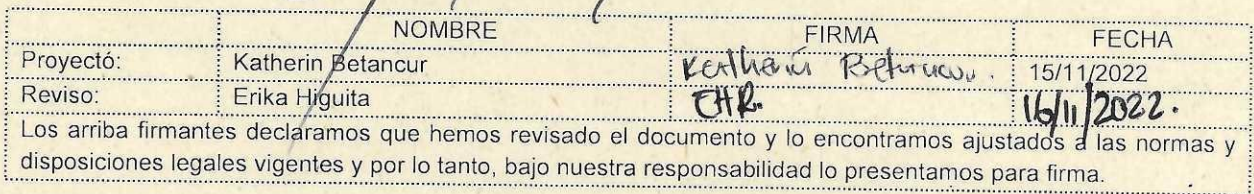 NOMBRE FIRMA FECHA
Proyectó: Katherin Betancur Katherin Betancur. 15/11/2022
Reviso: Erika Higuita EHR. 16/11/2022.
Los arriba firmantes declaramos que hemos revisado el documento y lo encontramos ajustados a las normas y
disposiciones legales vigentes y por lo tanto, bajo nuestra responsabilidad lo presentamos para firma.